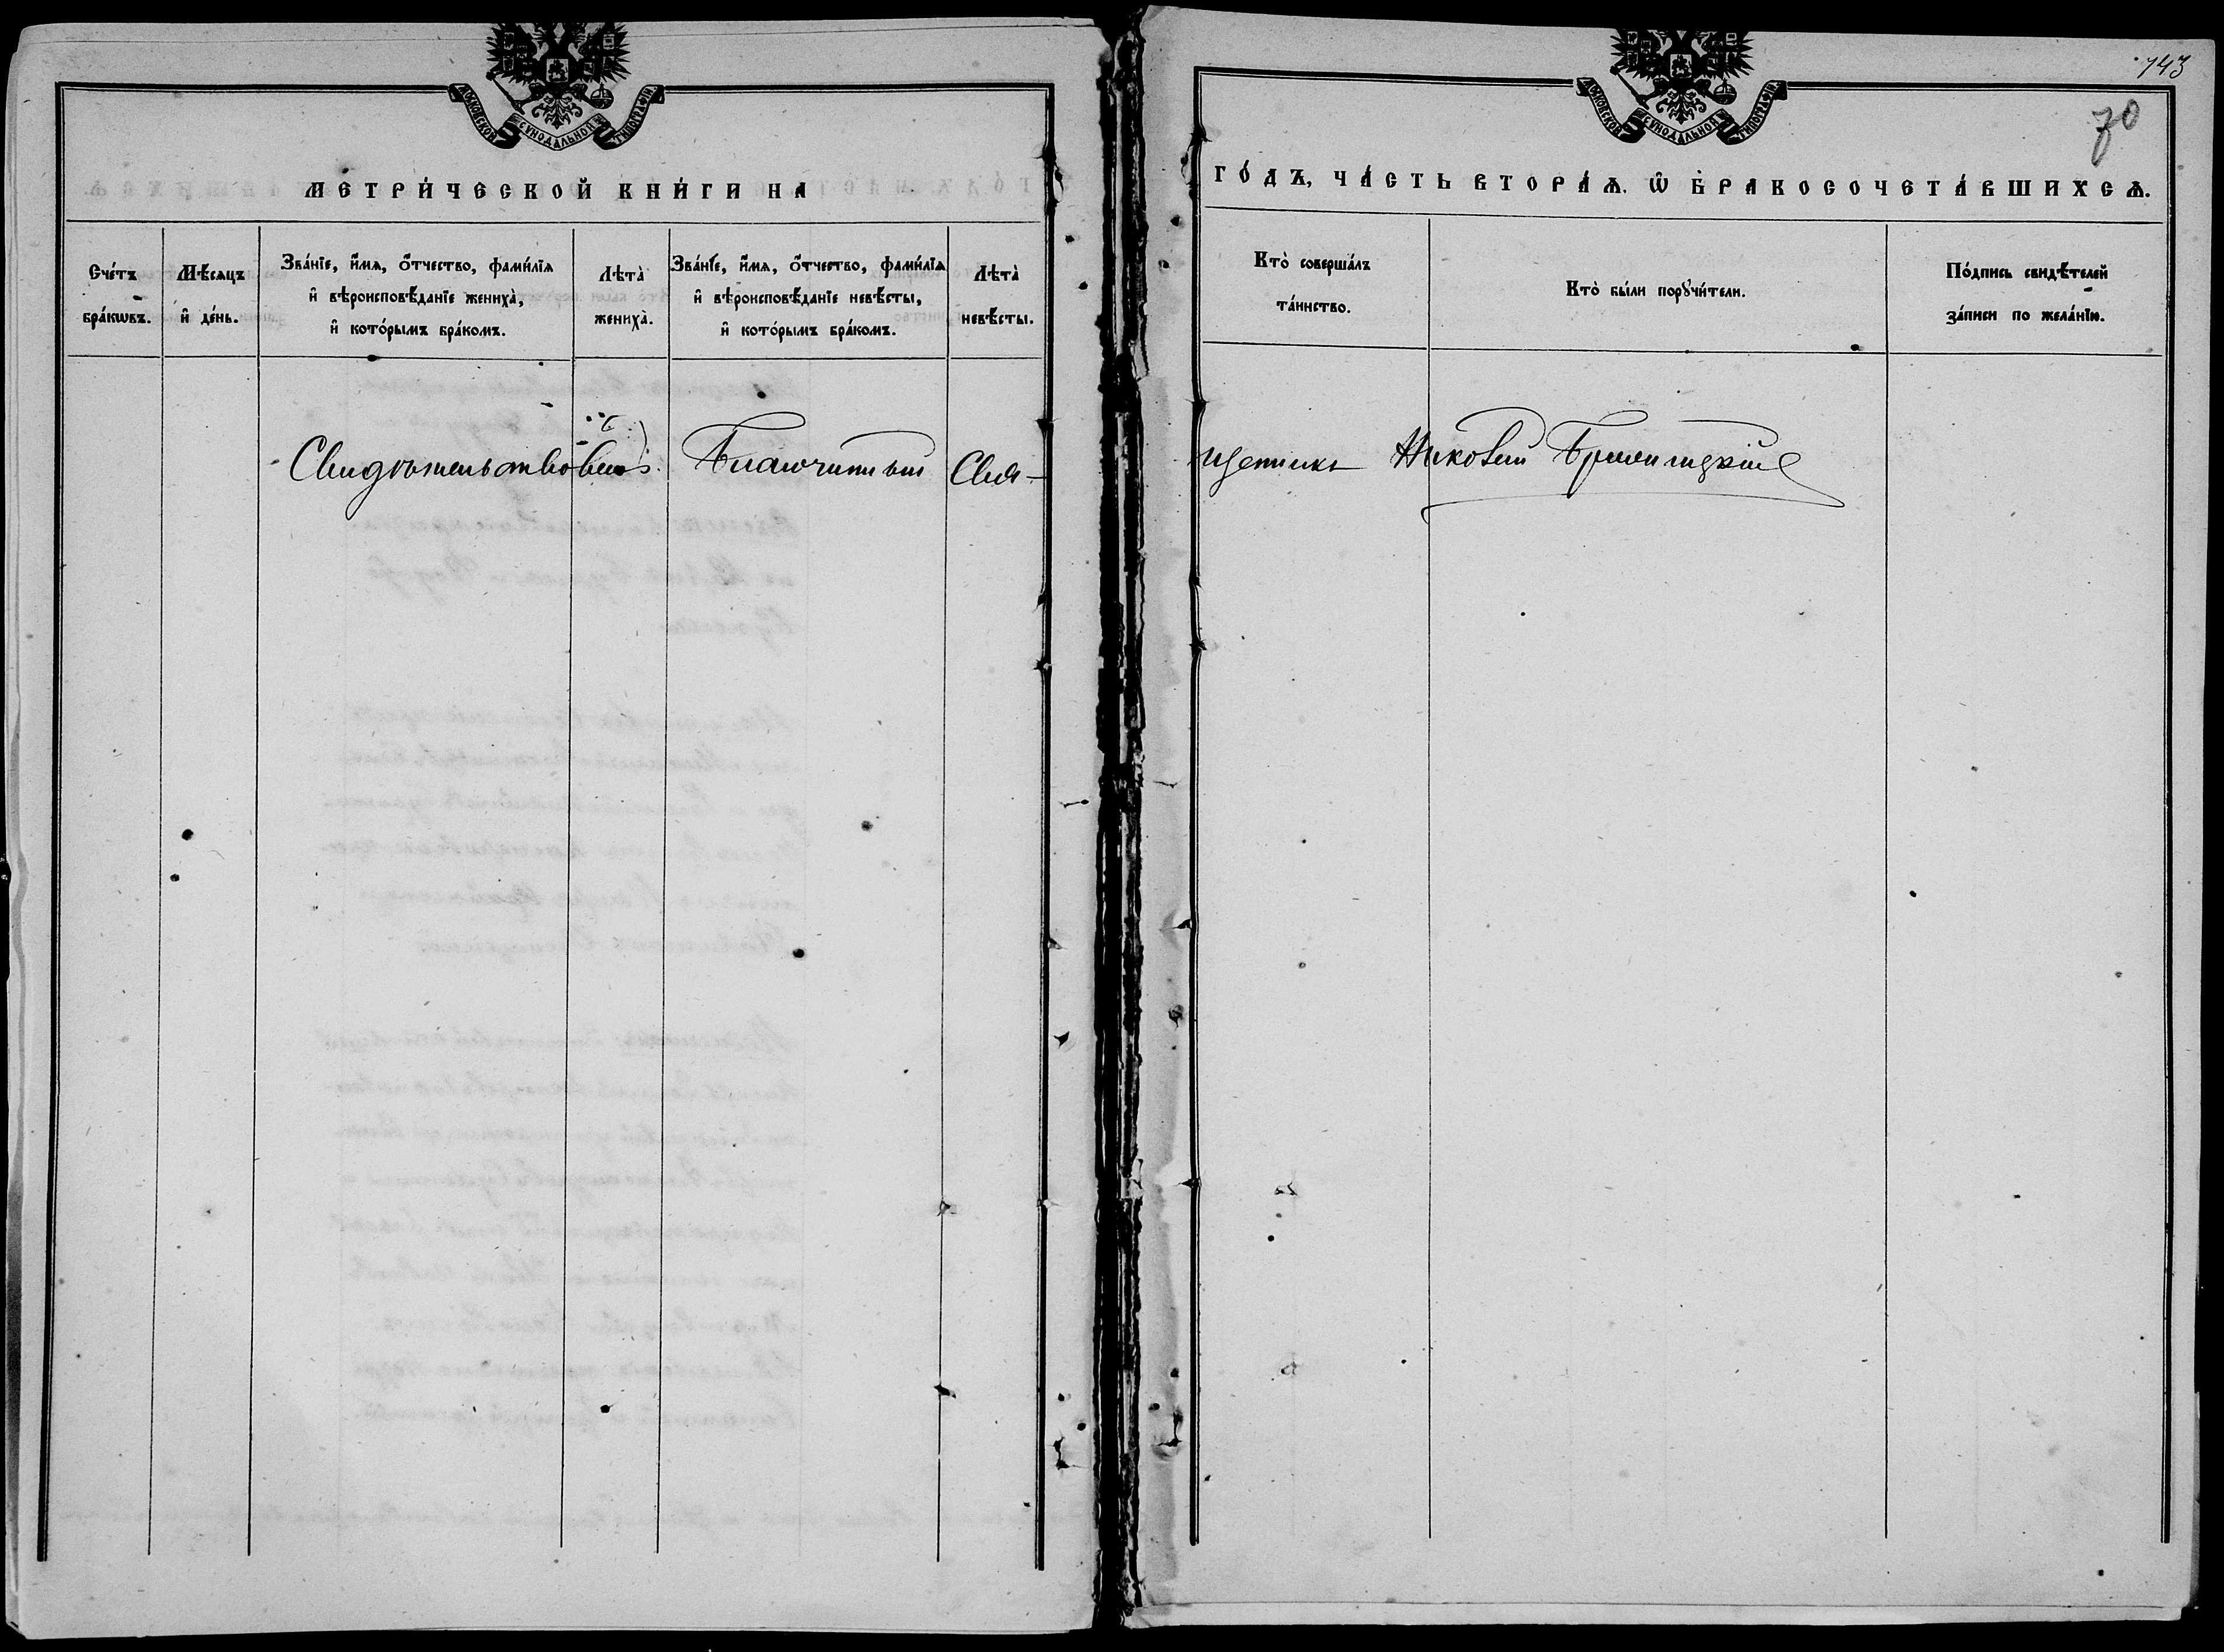 МОСКОВСКОЙ СѴНОДАЛЬНОЙ ТИПОГРАФІИ
МЕТРИ́ЧЕСКОЙ КНИ́ГИ НА
Сче́тъ бра́кѡвъ.
Мѣ́сяцъ и҆ де́нь.
Зва́нїе, и҆́мѧ, ѻ҆́тчество, фами́лїѧ и҆ вѣроисповѣ́данїе жениха̀, и҆ кото́рымъ бра́комъ.
Лѣта̀ жениха̀.
Зва́нїе, и҆́мѧ, ѻ҆́тчество, фами́лїѧ и҆ вѣроисповѣ́данїе невѣ́сты, и҆ кото́рымъ бра́комъ.
Лѣта̀ невѣ́сты.
Свидѣтельствовалъ: Благочинный Свя-
743
70
МОСКОВСКОЙ СѴНОДАЛЬНОЙ ТИПОГРАФІИ
ГО́ДЪ, ЧА́СТЬ ВТОРА́Ѧ, Ѡ҆ БРАКОСОЧЕТА́ВШИХСѦ.
Кто̀ соверша́лъ та́инство.
Кто̀ бы́ли порꙋчи́тели.
По́дпись свидѣ́телей за́писи по жела́нїю.
щенникъ